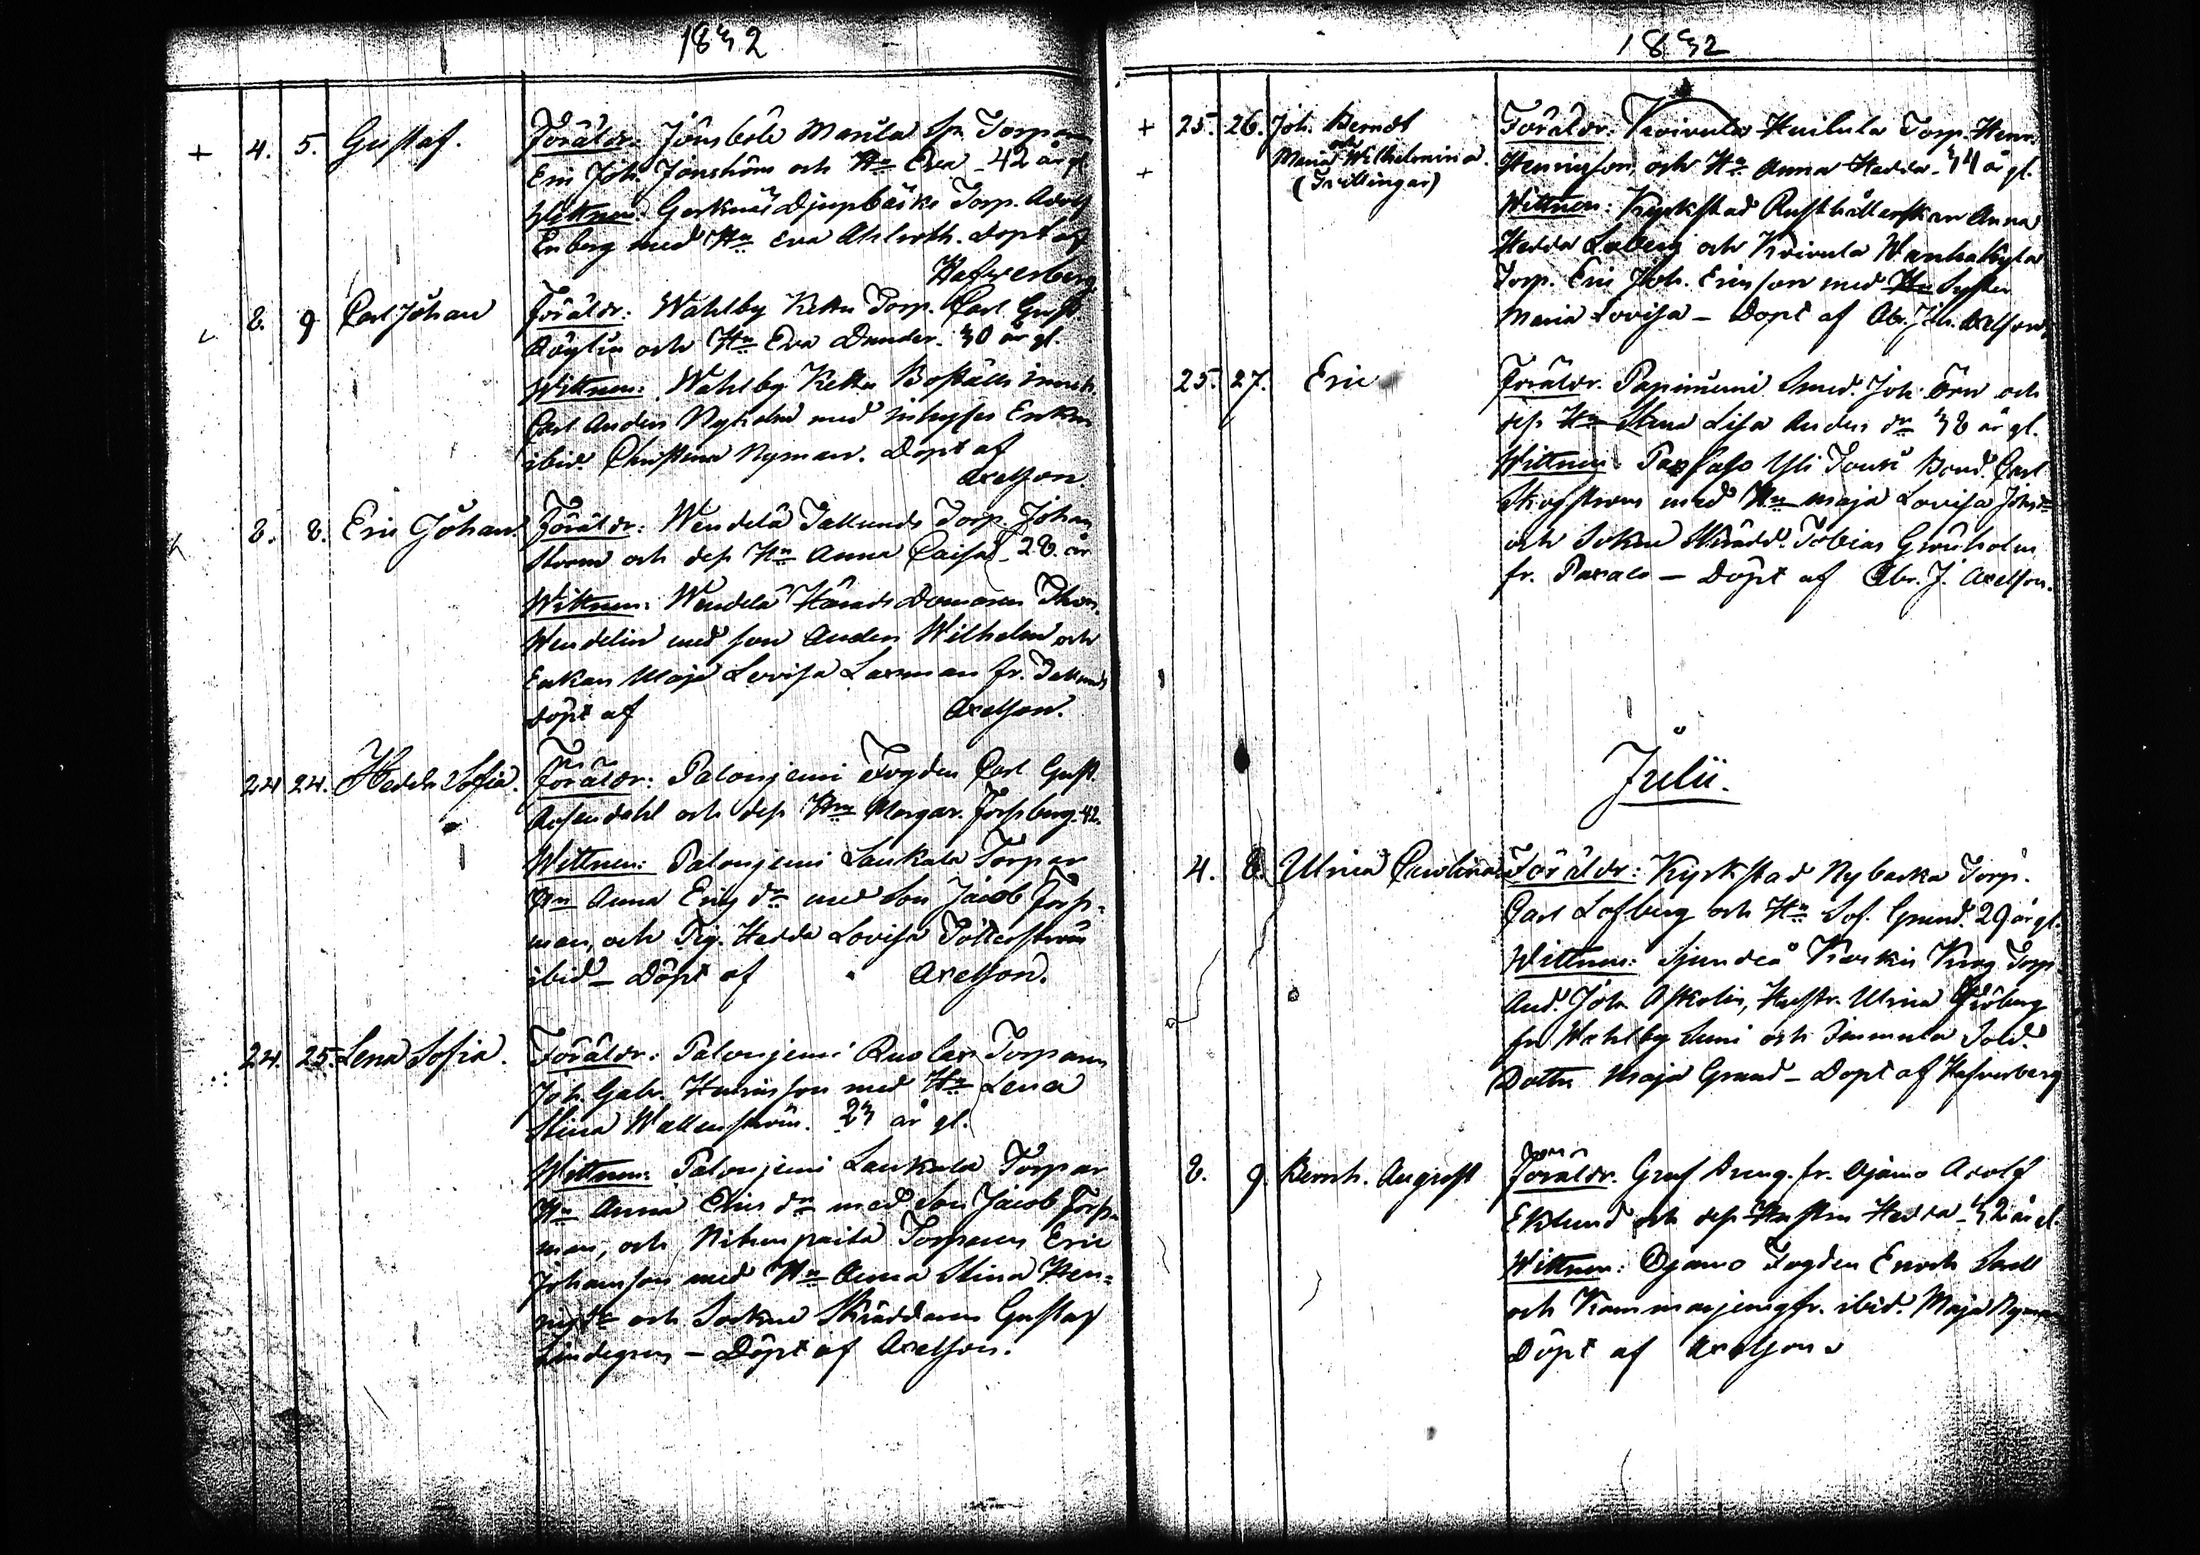 1832
+ 4. 5. Gustaf. Föräldr. Jönsböle Marila Sp. Torparn
Eric Joh. Jönström och Hu Eva 42 år gl
Wittnen: Gerknäs Djupbäcks Torp. Adolf
Enberg med Hu Eva Ahlroth. Döpt af
Hafverberg.
8. 9 Carl Johan Föräldr: Wahlby Kettu Torp. Carl Gust.
och Hu Eva Dunder. 30 år gl.
Wittnen: Wahlby Kettu Boställs inneh.
Carl Anders Nyholm med inhyses Enkan
ibid. Christina Nyman. Döpt af
Axelson.
8. 8. Eric Johan. Föräldr: Wendelä Jallunds Torp. Johan
Ström och dess Hu Anna Caisa 28 år
Wittnen: Wendelä Härads Domaren Thom.
Wendelin med son Anders Wilhelm och
Enkan Maja Lovisa Laxman fr. Jallunds
Döpt af Axelson.
24 24. Hedda Sofia. Föräldr: Palonjemi Fogden Carl Gust.
Rosendahl och dess Hu Margar. Forsberg. 42.
Wittnen: Palonjemi Laukala Torpar
Hu Anna Erics dr med Son Jacob Forss-
man, och Pig. Hedda Lovisa
ibid – Döpt af Axelson.
24. 25. Lena Sofia. Föräldr: Palonjemi Torparen
Joh. Gabr. Henricsson med Hu Lena
Stina Wallenström. 23 år gl.
Wittnen: Palonjemi Laukala Torpar
Hu Anna Erics dr med Son Jacob Forss-
man, och Torparen Eric
Johansson med Hu Anna Stina Hen-
rics dr och Sockne Skräddaren Gustaf
Lindegren – Döpt af Axelson.
1832
+ 25. 26. Joh. Berndt Föräldr: Koivula Huilula Torp. Henr.
och
+ Maria Wilhelmina. Henricsson och Hu Anna Hedda 34 år gl.
(Tvillingar) Wittnen: Kyrkstad Rusthållerskan Anna
Hedda och Koivula Wanhakylä
Torp. Eric Joh. Ericsson med Hu Syster
Maria Lovisa – Döpt af Abr. Joh. Axelson.
25. 27. Eric Föräldr. Papiniemi Smed. Joh. Örn och
dess Hu Stina Lisa Anders dr 38 år gl.
Wittnen: Yli Jousi Bond. Carl
Skogström med Hu Maja Lovisa Johsdr
och Sockne Skrädd. Tobias Grönholm
fr. – Döpt af Abr. J. Axelson.
Julii.
4. 8. Ulrica Carolina Föräldr: Kyrkstad Nybacka Torp.
Carl Lofberg och Hu Sof. Grund. 29 år gl.
Wittnen: Sjundeå Krog Torp.
And. Joh. Askolin, Hustr. Ulrica Fröberg
fr Wahlby Suni och Immula Sold.
Dottr. Maja Grund – Döpt af Hafverberg
8. 9. Bernh. August Föräldr. Gruf Dreng. fr. Ojamo Adolf
Eklund och dess Hustru Hedda 32 år gl.
Wittnen: Ojamo Fogden Enoch Snell
och Kammarjungfr. ibid. Maja Nyman
Döpt af Axelson